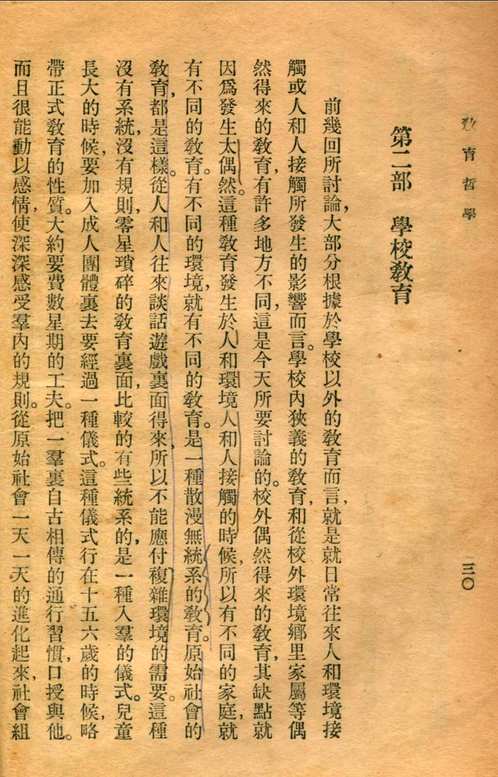 教育哲學
三〇
第二部　學校教育
前幾回所討論，大部分根據於學校以外的教育而言，就是就日常往來人和環境接
觸或人和人接觸所發生的影響而言。學校內狹義的教育，和從校外環境鄉里家屬等偶
然得來的教育，有許多地方不同，這是今天所要討論的。校外偶然得來的教育，其缺點就
因爲發生太偶然。這種教育發生於人和環境人和人接觸的時候，所以有不同的家庭就
有不同的教育。有不同的環境，就有不同的教育。是一種散漫無統系的教育。原始社會的
教育，都是這樣。從人和人往來談話遊戲裏面得來，所以不能應付複雜環境的需要。這種
沒有系統，沒有規則，零星瑣碎的教育裏面，比較的有些統系的，是一種入羣的儀式。兒童
長大的時候，要加入成人團體裏去，要經過一種儀式。這種儀式行在十五六歲的時候，略
帶正式教育的性質。大約要費數星期的工夫。把一羣裏自古相傳的通行習慣，口授與他。
而且很能動以感情，使深深感受羣內的規則。從原始社會一天一天的進化起來，社會組